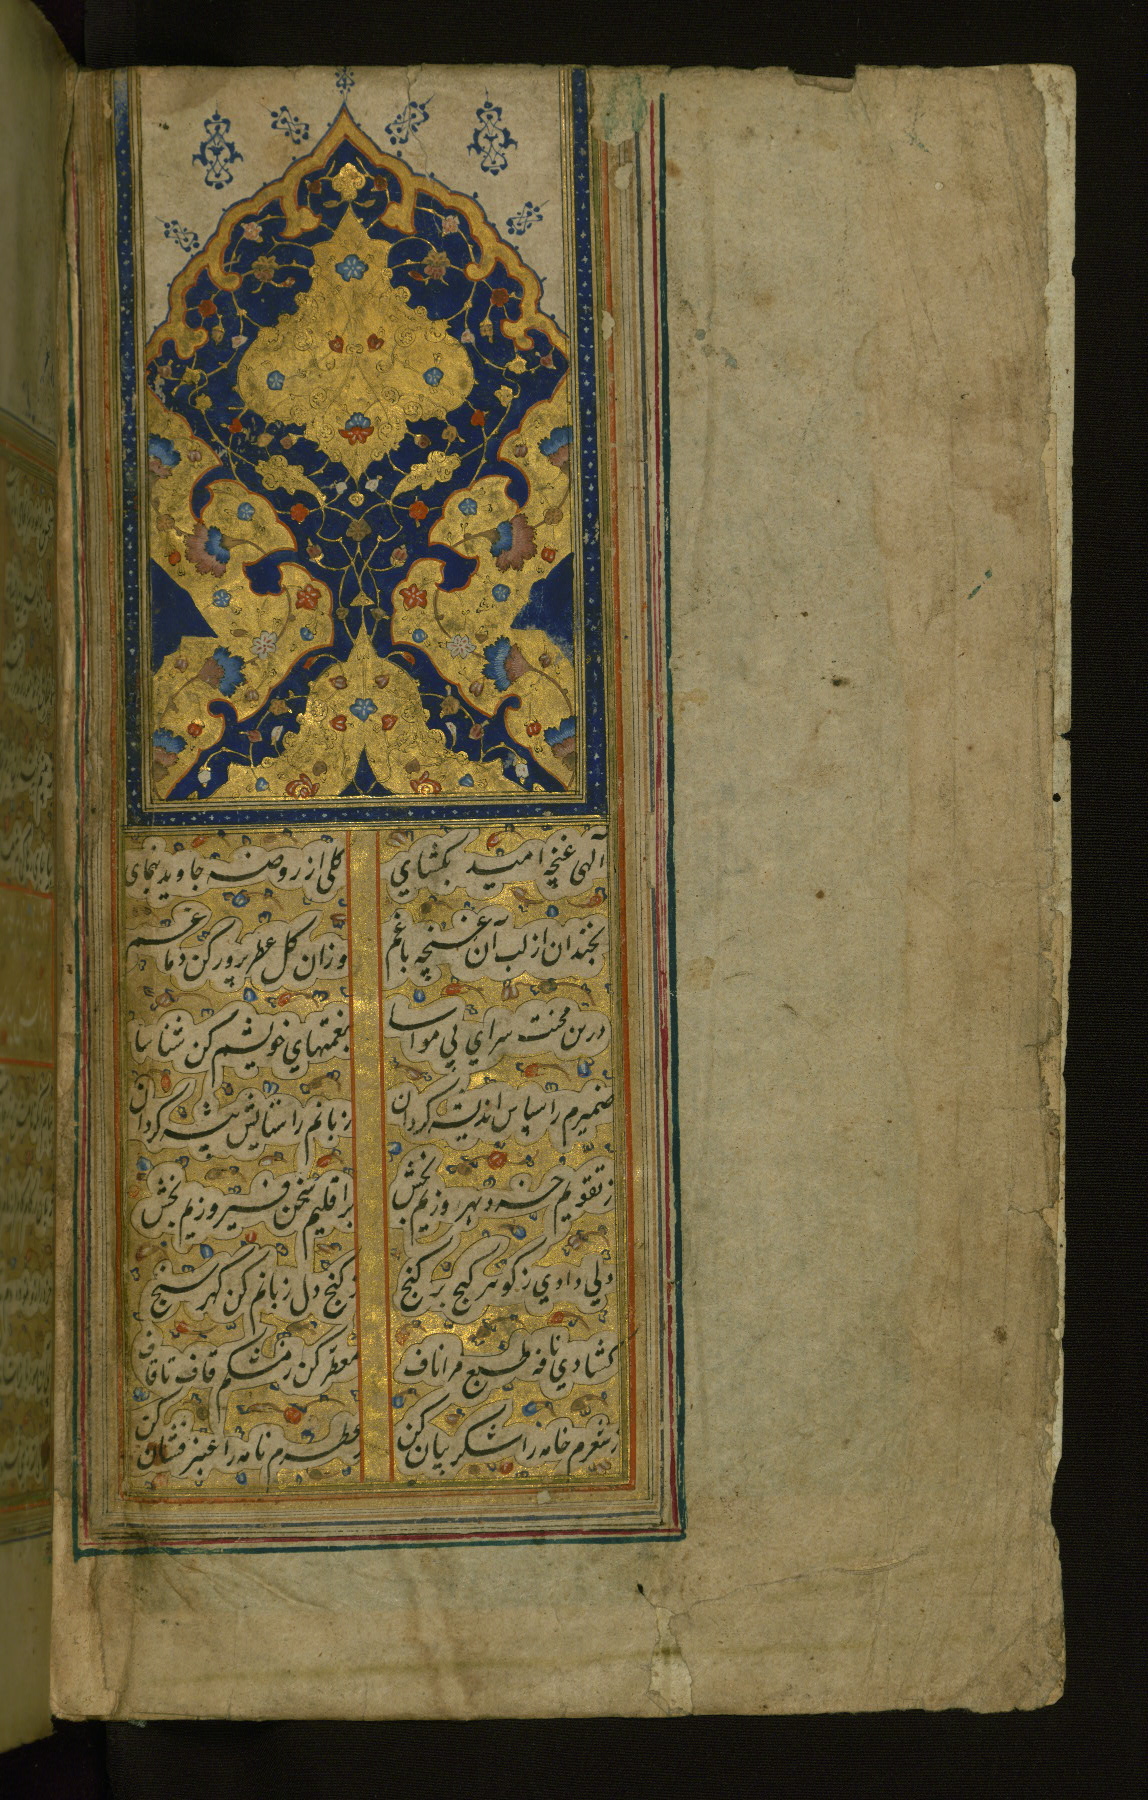 الهی غنچه امید بکشای گلی از روضه جاوید بنمای
بخندان از لب آن غنچه باغم وزان گل عطرپرور کن دماغم
درین محنت سرای بی مواسا بنعمتهای خویشم کن شناسا
ضمیرم را سپاس اندیشه گردان زبانم را ستایش پیشه گردان
ز تقویم خرد بهروزیم بخش بر اقلیم سخن فیروزیم بخش
دلی دادی ز گوهر گنج بر گنج ز گنج دل زبانم کن گهر سنج
گشادی نافه طبع مرا ناف معطر کن ز مشکم قاف تا قاف
ز شعرم خامه را شکر بیان کن ز عطرم نامه را عنبر فشان کن